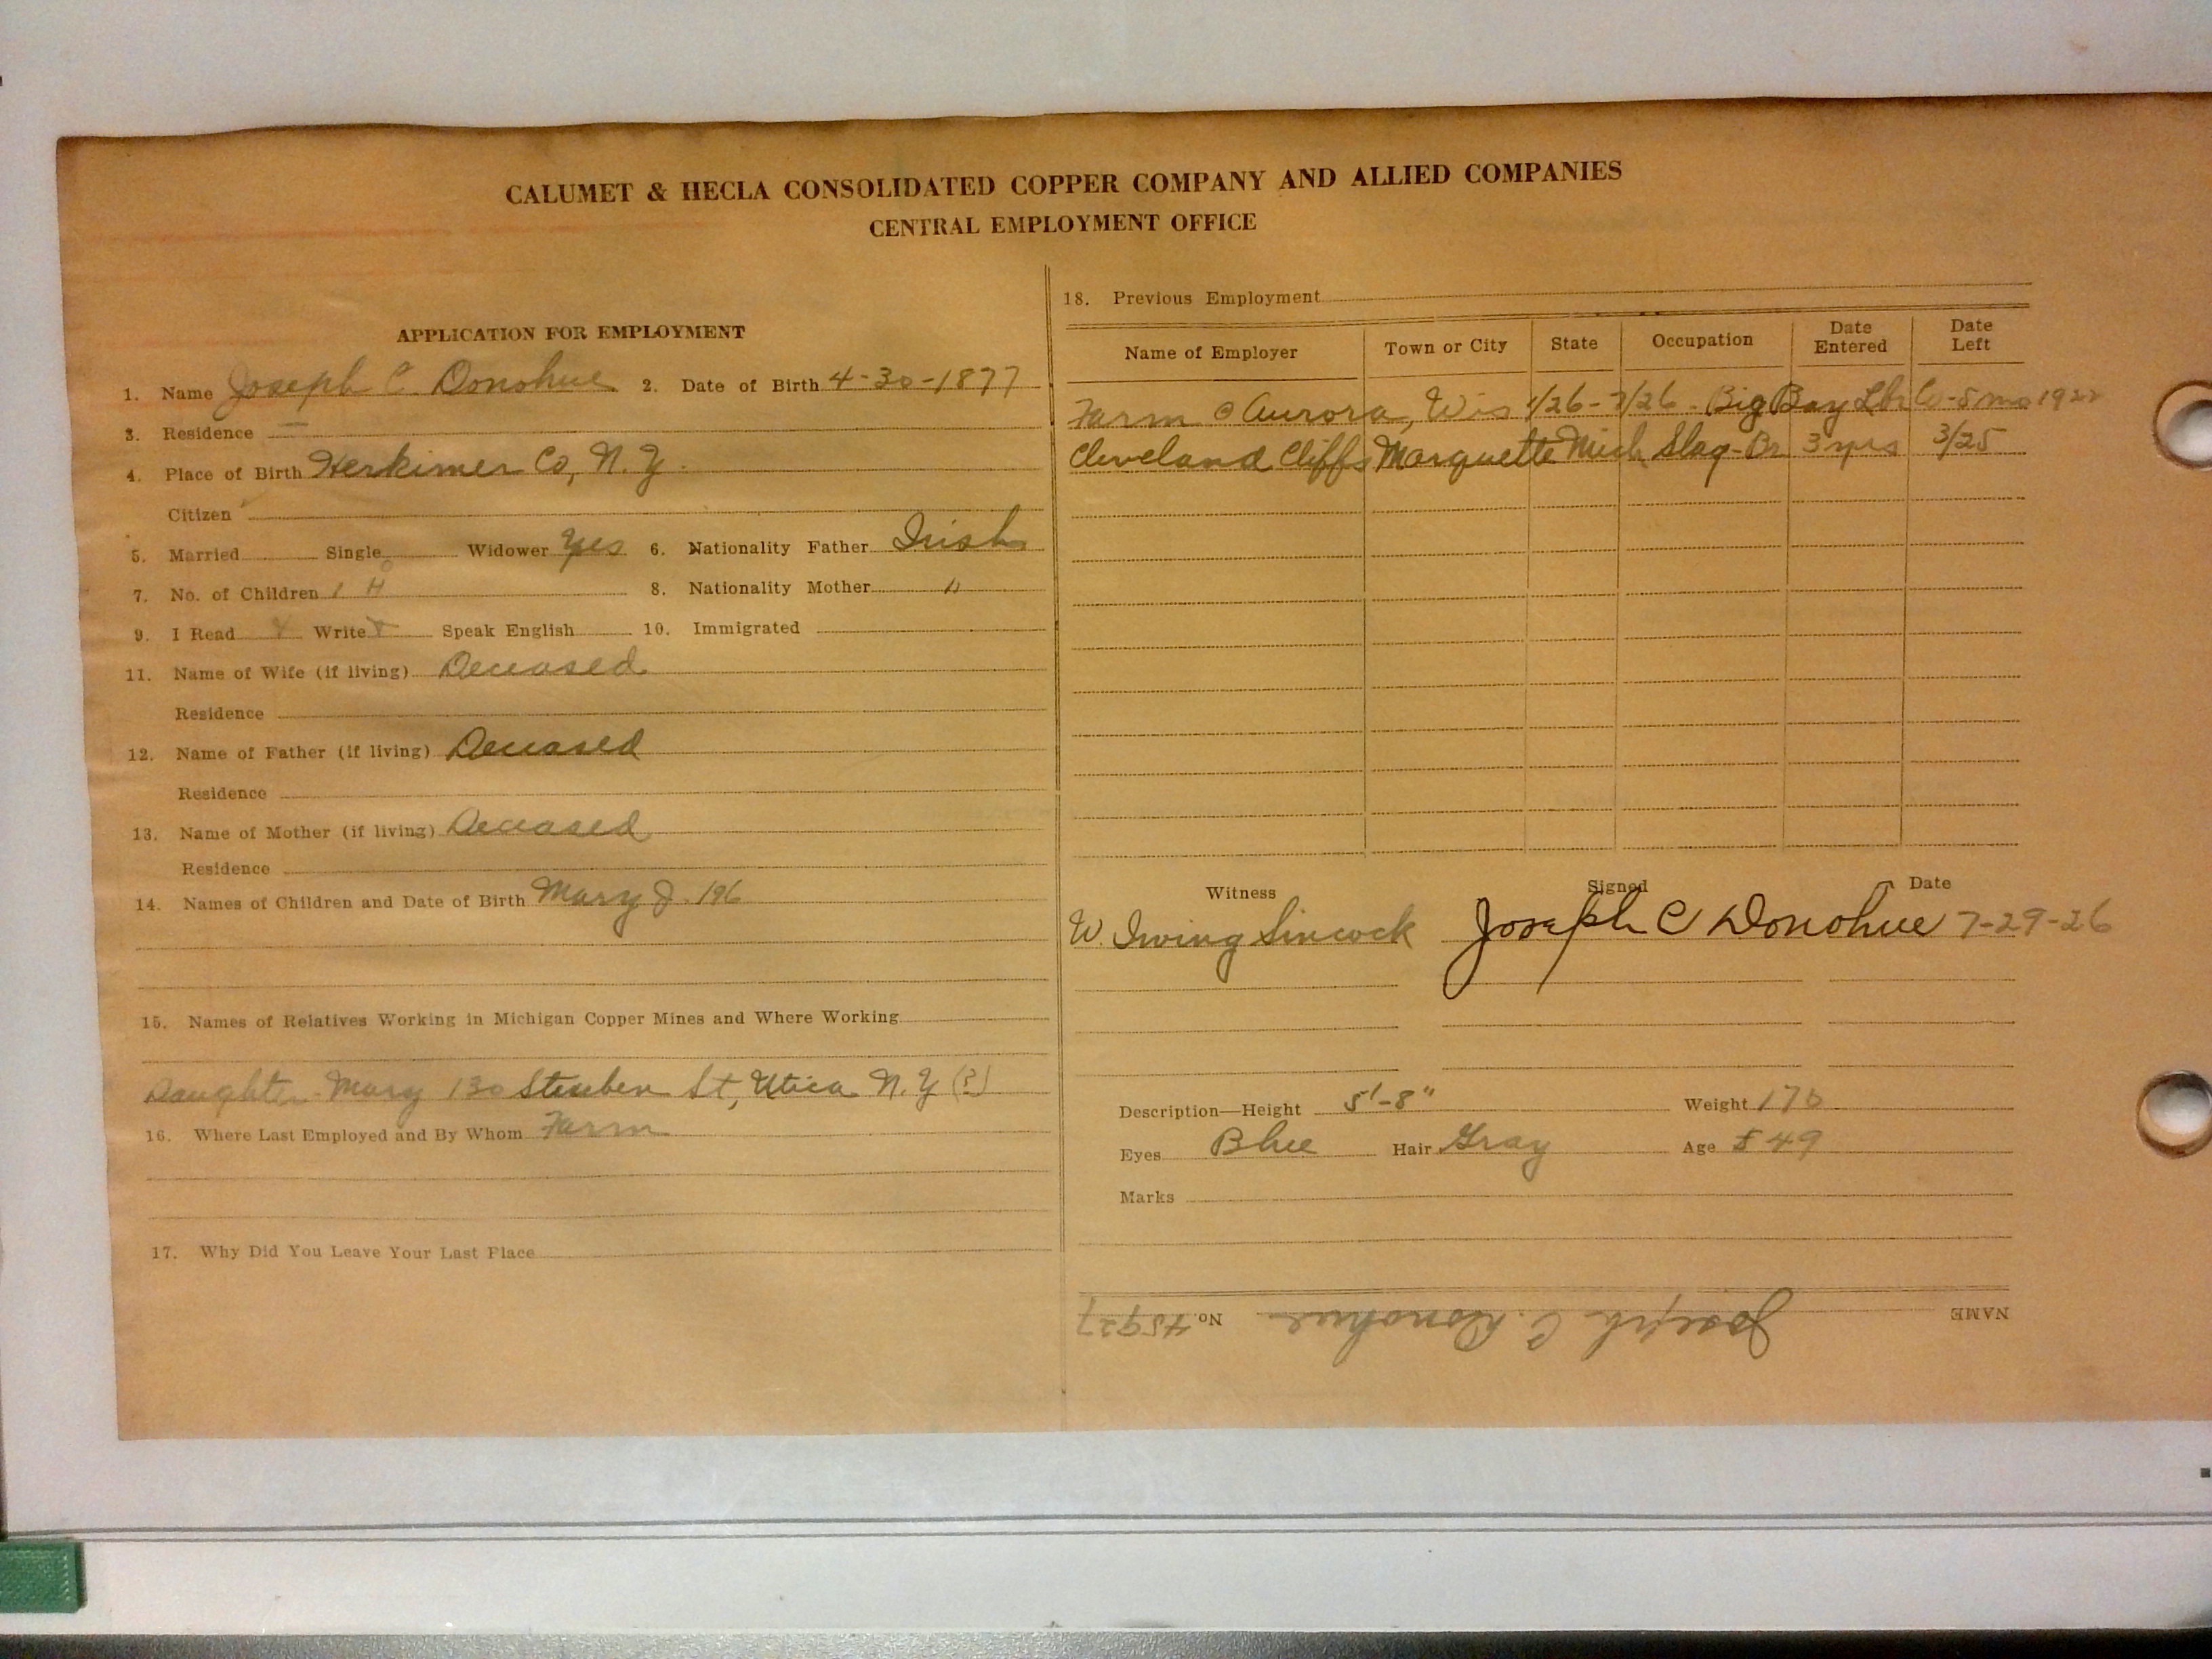 CALUMET & HECLA CONSOLIDATED COPPER COMPANY AND ALLIED COMPANIES
CENTRAL EMPLOYMENT OFFICE
APPLICATION FOR EMPLOYMENT
1. Name Joseph C. Donohue 2. Date of Birth 4-30-1877
3. Residence —
4. Place of Birth Herkimer Co, N.Y.
Citizen
5. Married Single Widower Yes 6. Nationality Father Irish
7. No. of Children 1 8. Nationality Mother "
9. I Read Write Speak English 10. Immigrated
11. Name of Wife (if living) Deceased
Residence
12. Name of Father (if living) Deceased
Residence
13. Name of Mother (if living) Deceased
Residence
14. Names of Children and Date of Birth Mary J.
15. Names of Relatives Working in Michigan Copper Mines and Where Working
Daughter Mary 130 Steuben St, Utica N.Y (?)
16. Where Last Employed and By Whom Farm
17. Why Did You Leave Your Last Place
18. Previous Employment
Name of Employer Town or City State Occupation Date Entered Date Left
Farm @ Aurora, Wis 1/26-7/26 - Big Bay Lbr Co - 5 mo
Cleveland Cliffs Marquette Mich 3 yrs 3/25
Witness Signed Date
W. Irving Sincock Joseph C Donohue 7-29-26
Description—Height 5'-8" Weight
Eyes Blue Hair Gray Age 49
Marks
NAME Joseph C. Donohue No. 45927